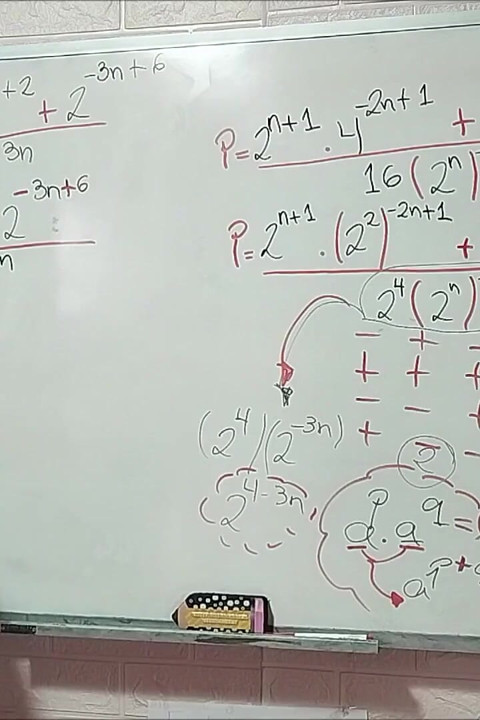 +2 + 2^{-3n+6}
3n
2^{-3n+6}
n
P = 2^{n+1} . 4^{-2n+1} +
16 (2^{n})
P = 2^{n+1} . (2^{2})^{-2n+1} +
2^{4} (2^{n})
- + -
+ + +
- - +
+ - -
(2^{4})(2^{-3n})
2
2^{4-3n}
a^{p} . a^{q} =
a^{p+q}